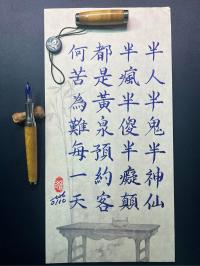 半人半鬼半神仙
半瘋半傻半癡顛
都是黃泉預約客
何苦為難每一天